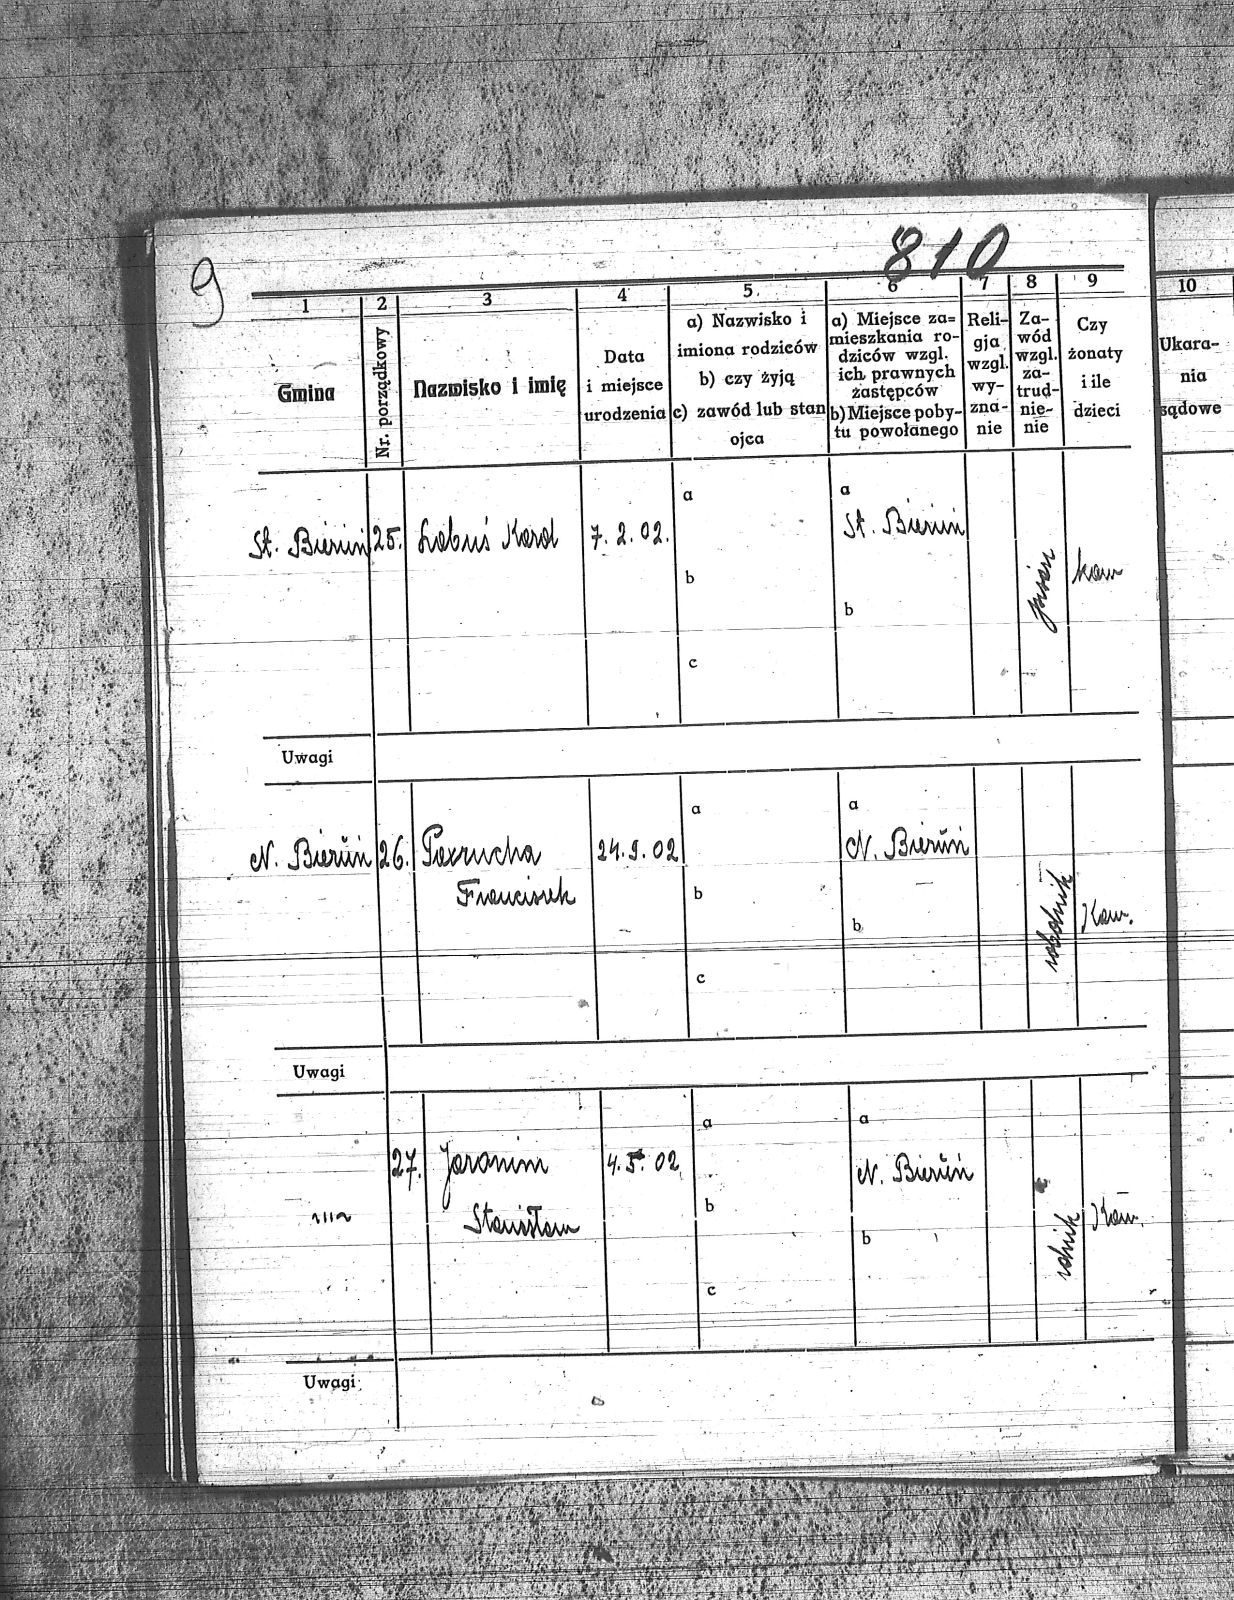 9
810
1 2 3 4 5. 6 7 8 9 10
Gmina
Nr. porządkowy
Nazwisko i imię
Data
i miejsce
urodzenia
a) Nazwisko i
imiona rodziców
b) czy żyją
c) zawód lub stan
ojca
a) Miejsce za=
mieszkania ro-
dziców wzgl.
ich prawnych
zastępców
b) Miejsce poby-
tu powołanego
Reli-
gja
wzgl.
wy-
zna-
nie
Za-
wód
wzgl.
za-
trud-
nie-
nie
Czy
żonaty
i ile
dzieci
Ukara-
nia
sądowe
St. Bieruń 25. Labuś Karol 7. 2. 02.
a
b
c
a
St. Bieruń
b
kaw
Uwagi
N. Bieruń 26. Poxrucha
Franciszek
24. 9. 02
a
b
c
a
N. Bieruń
b
robotnik
Kaw.
Uwagi
27. Jaromin
Stanisław
4. 5. 02
a
b
c
a
N. Bieruń
b
rolnik
Kaw.
Uwagi